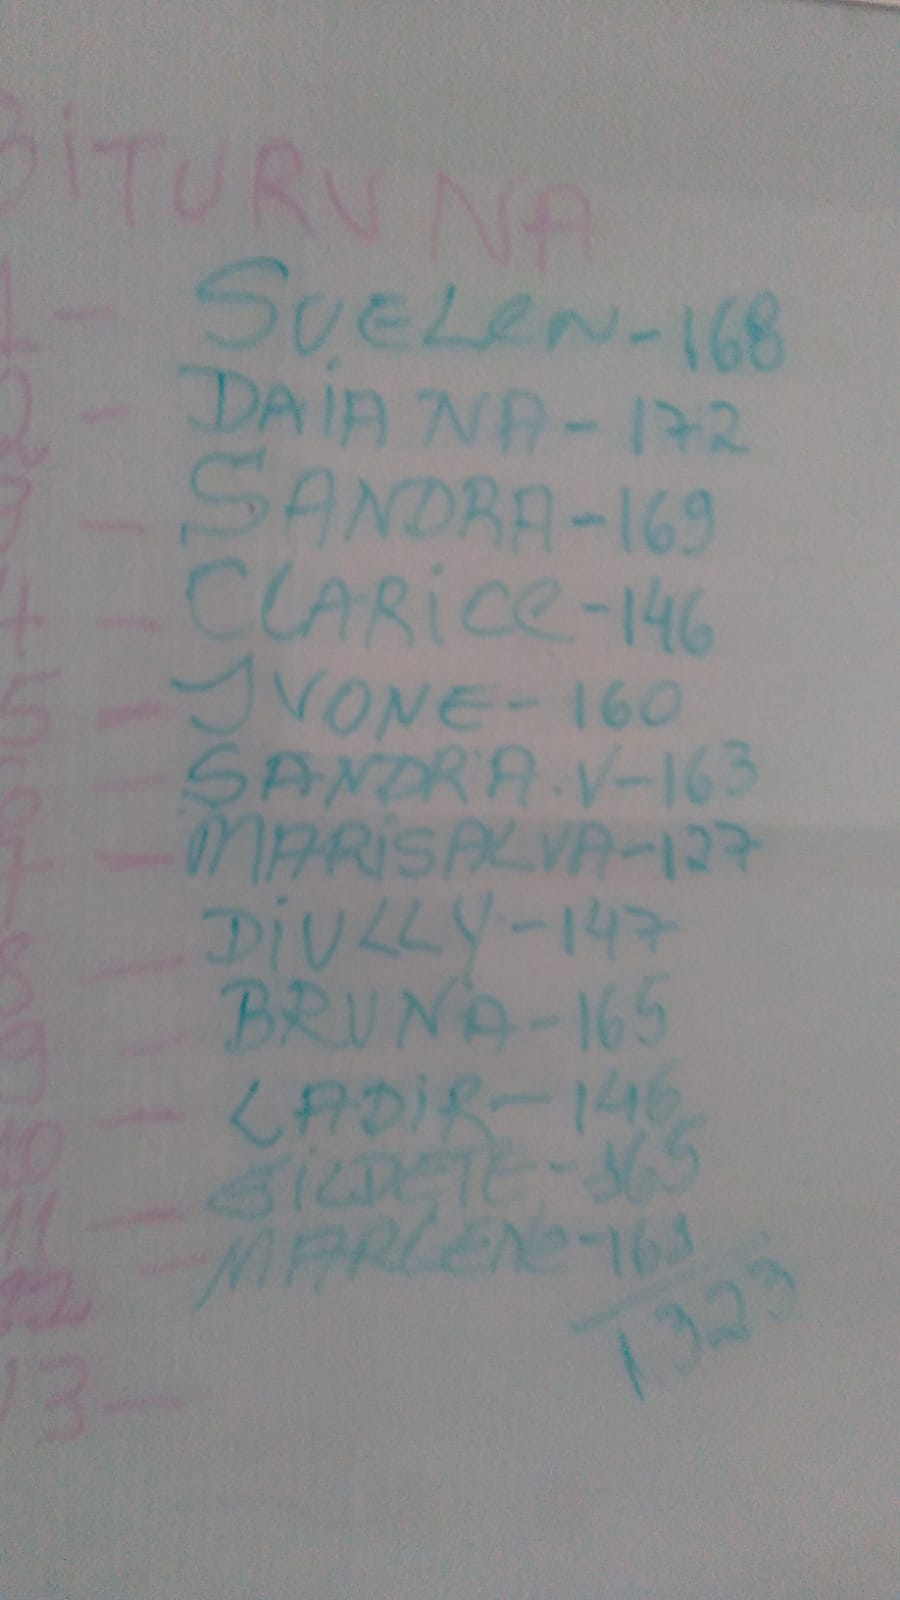 BITURUNA
1- SUELEN-168
2- DAIANA-172
3- SANDRA-169
4- CLARICE-146
5- IVONE-160
6- SANDRA.V-163
7- MARISALVA-127
8- DIULLY-147
9- BRUNA-165
10- LADIR-146
11- GILDETE-165
12- MARLENE-163
1323
13-